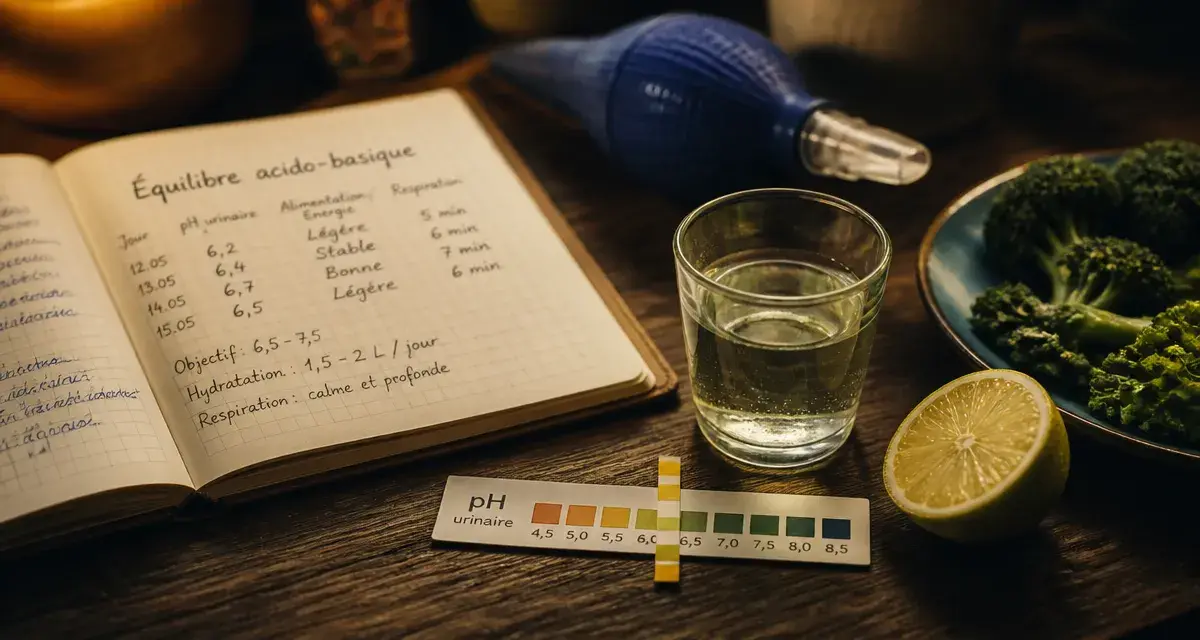 Équilibre acido-basique
Jour pH urinaire Alimentation/ Énergie Respiration
12.05 6,2 Légère 5 min
13.05 6,4 Stable 6 min
14.05 6,7 Bonne 7 min
15.05 6,5 Légère 6 min
Objectif : 6,5 – 7,5
Hydratation : 1,5 – 2 L / jour
Respiration : calme et profonde
pH
urinaire
4,5 5,0 5,5 6,0 6,5 7,0 7,5 8,0 8,5